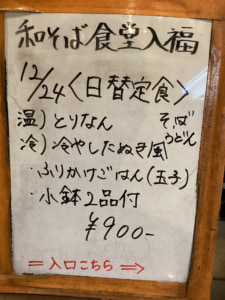 和そば食堂入福
12/24〈日替定食〉
温)とりなん そば
冷)冷やしたぬき風 うどん
・ふりかけごはん(玉子)
・小鉢2品付
¥900-
⇒入口こちら⇒